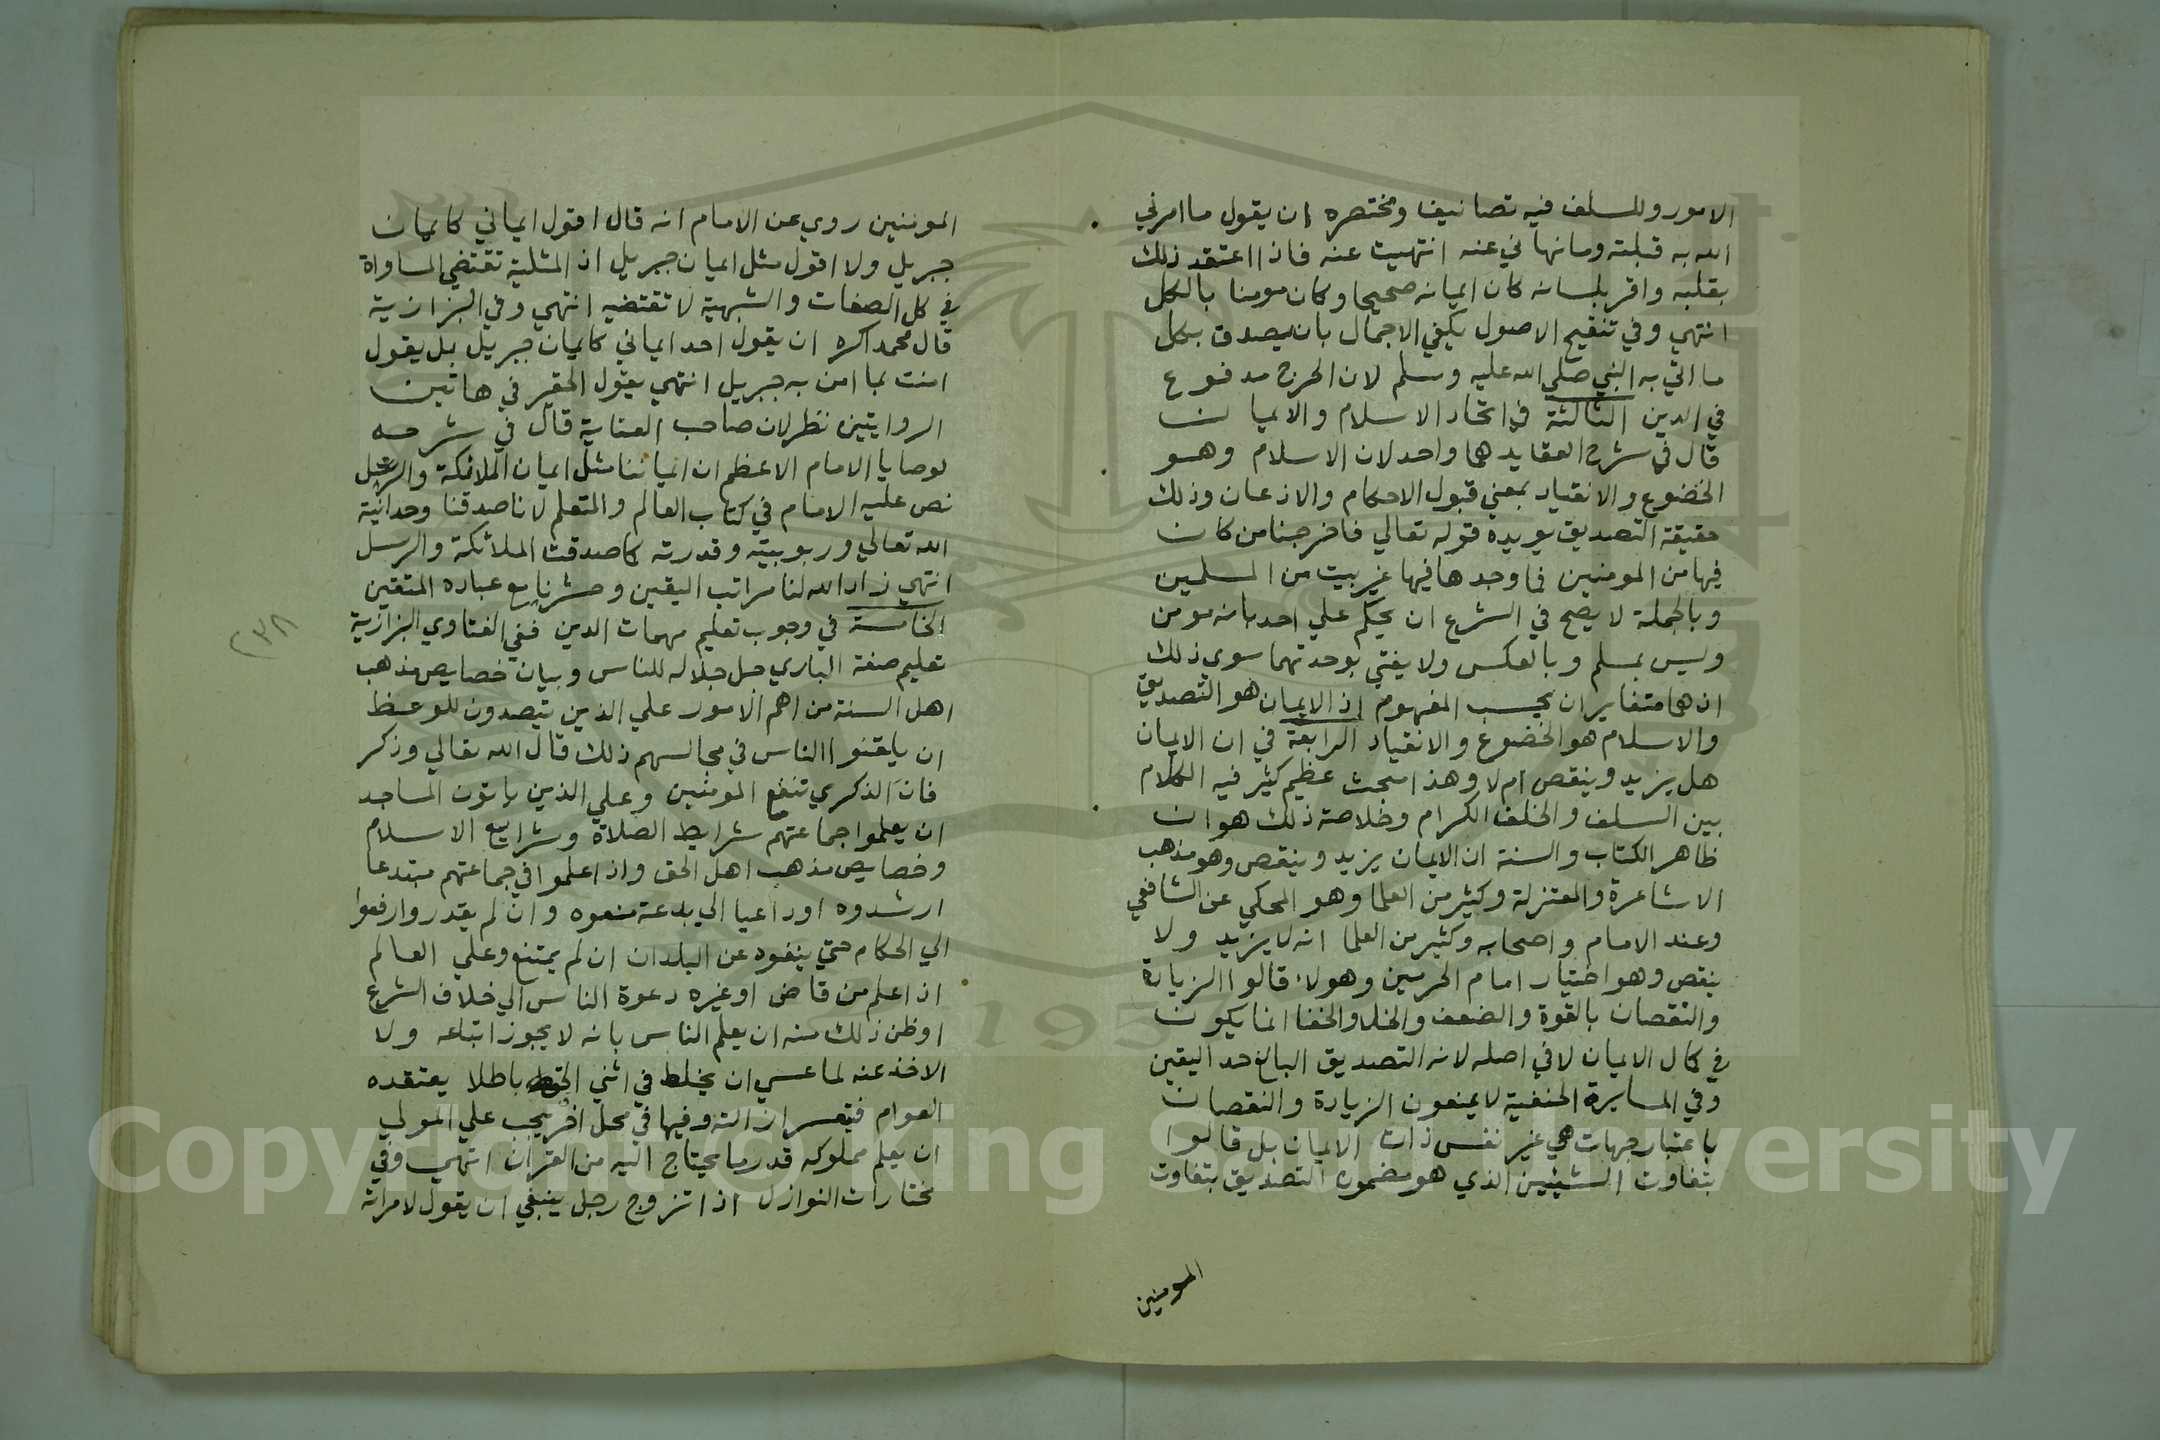 الامور وللسلف فيه تصانيف ومختصره ان يقول ما امرني
الله به قبلته وما نهاني عنه انتهيت عنه فاذا اعتقد ذلك
بقلبه واقر بلسانه كان ايمانه صحيحا وكان مومنا بالكل
انتهي وفي تنقيح الاصول يكفي الاجمال بان يصدق بكل
ما اتي به النبي صلي الله عليه وسلم لان الحرج مدفوع
في الدين الثالثة في اتحاد الاسلام والايمان
قال في شرح العقايد هما واحد لان الاسلام وهو
الخضوع والانقياد بمعني قبول الاحكام والاذعان وذلك
حقيقة التصديق يويده قوله تعالي فاخرجنا من كان
فيها من المومنين فما وجدها فيها غير بيت من المسلمين
وبالجملة لا يصح في الشرع ان يحكم علي احد بانه مومن
وليس بمسلم وبالعكس ولا يفتي بوحدتهما سوي ذلك
اذ هما متغايران بحسب المفهوم اذ الايمان هو التصديق
والاسلام هو الخضوع والانقياد الرابعة في ان الايمان
هل يزيد وينقص ام لا وهذا مبحث عظيم كثر فيه الكلام
بين السلف والخلف الكرام وخلاصة ذلك هو ان
ظاهر الكتاب والسنة ان الايمان يزيد وينقص وهو مذهب
الاشاعرة والمعتزلة وكثير من العلما وهو المحكي عن الشافعي
وعند الامام واصحابه وكثير من العلما انه لا يزيد ولا
ينقص وهو اختيار امام الحرمين وهولاء قالوا الزيادة
والنقصان بالقوة والضعف والجلا والخفا انما يكون
في كمال الايمان لا في اصله لانه التصديق البالغ حد اليقين
وفي المسايرة الحنفية لا يمنعون الزيادة والنقصان
باعتبار جهات هي غير نفس ذات الايمان بل قالوا
بتفاوت الشيئين الذي هو مضمون التصديق بتفاوت
المومنين
المومنين روي عن الامام انه قال اقول ايماني كايمان
جبريل ولا اقول مثل ايمان جبريل اذ المثلية تقتضي المساواة
في كل الصفات والشبهية لا تقتضيه انتهي وفي البزازية
قال محمد اكره ان يقول احد ايماني كايمان جبريل بل يقول
امنت بما امن به جبريل انتهي يقول الحقير في هاتين
الروايتين نظر لان صاحب العناية قال في شرحه
لوصايا الامام الاعظم ان ايماننا مثل ايمان الملائكة والرسل
نص عليه الامام في كتاب العالم والمتعلم لانا صدقنا وحدانية
الله تعالي وربوبيته وقدرته كما صدقت الملائكة والرسل
انتهي زاد الله لنا مراتب اليقين وحشرنا مع عباده المتقين
الخامسة في وجوب تعليم مهمات الدين ففي الفتاوي البزازية
تعليم صفة الباري جل جلاله للناس وبيان خصايص مذهب
اهل السنة من اهم الامور علي الذين يتصدون للوعظ
ان يلقنوا الناس في مجالسهم ذلك قال الله تعالي وذكر
فان الذكري تنفع المومنين وعلي الذين ياتون المساجد
ان يعلموا جماعتهم شرايط الصلاة وشرايع الاسلام
وخصايص مذهب اهل الحق واذا علموا في جماعتهم مبتدعا
ارشدوه او داعيا الي بدعة منعوه وان لم يقدروا رفعوا
الي الحكام حتي ينفوه عن البلدان ان لم يمتنع وعلي العالم
اذا علم من قاض او غيره دعوة الناس الي خلاف الشرع
او ظن ذلك منه ان يعلم الناس بانه لا يجوز اتباعه ولا
الاخذ عنه لما عسي ان يخلط في اثني الحق باطلا يعتقده
العوام فيتعسر ازالته وفيها في محل اخر يجب علي المولي
ان يعلم مملوكه قدر ما يحتاج اليه من القران انتهي وفي
مختارات النوازل اذا تزوج رجل ينبغي ان يقول لامراته
٢٣٨
Copyright © King Saud University
195